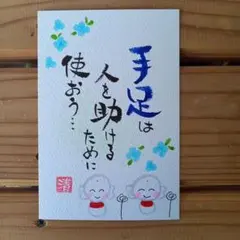 手足は
人を助ける
ために
使おう…
清